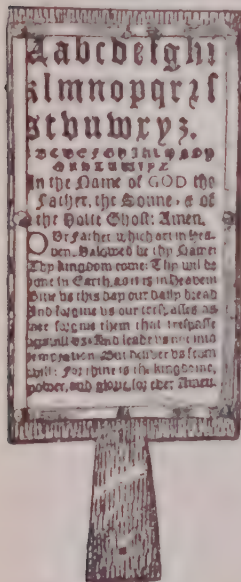 Aabcdefghi
klmnopqrꝛſ
stvuwxyz.
In the Name of GOD the
Father, the Sonne, & of
the Holie Ghost: Amen.
OUr Father which art in Hea-
ven, Halowed be thy Name:
Thy kingdom come: Thy wil be
done in Earth, as it is in Heaven:
Give us this day our daily bread
And forgive us our tresp asses as
wee forgive them that trespasse
against us: And leade us not into
temptation. But deliver us from
evill: For thine is the kingdome,
power, and glorie, for ever Amen.